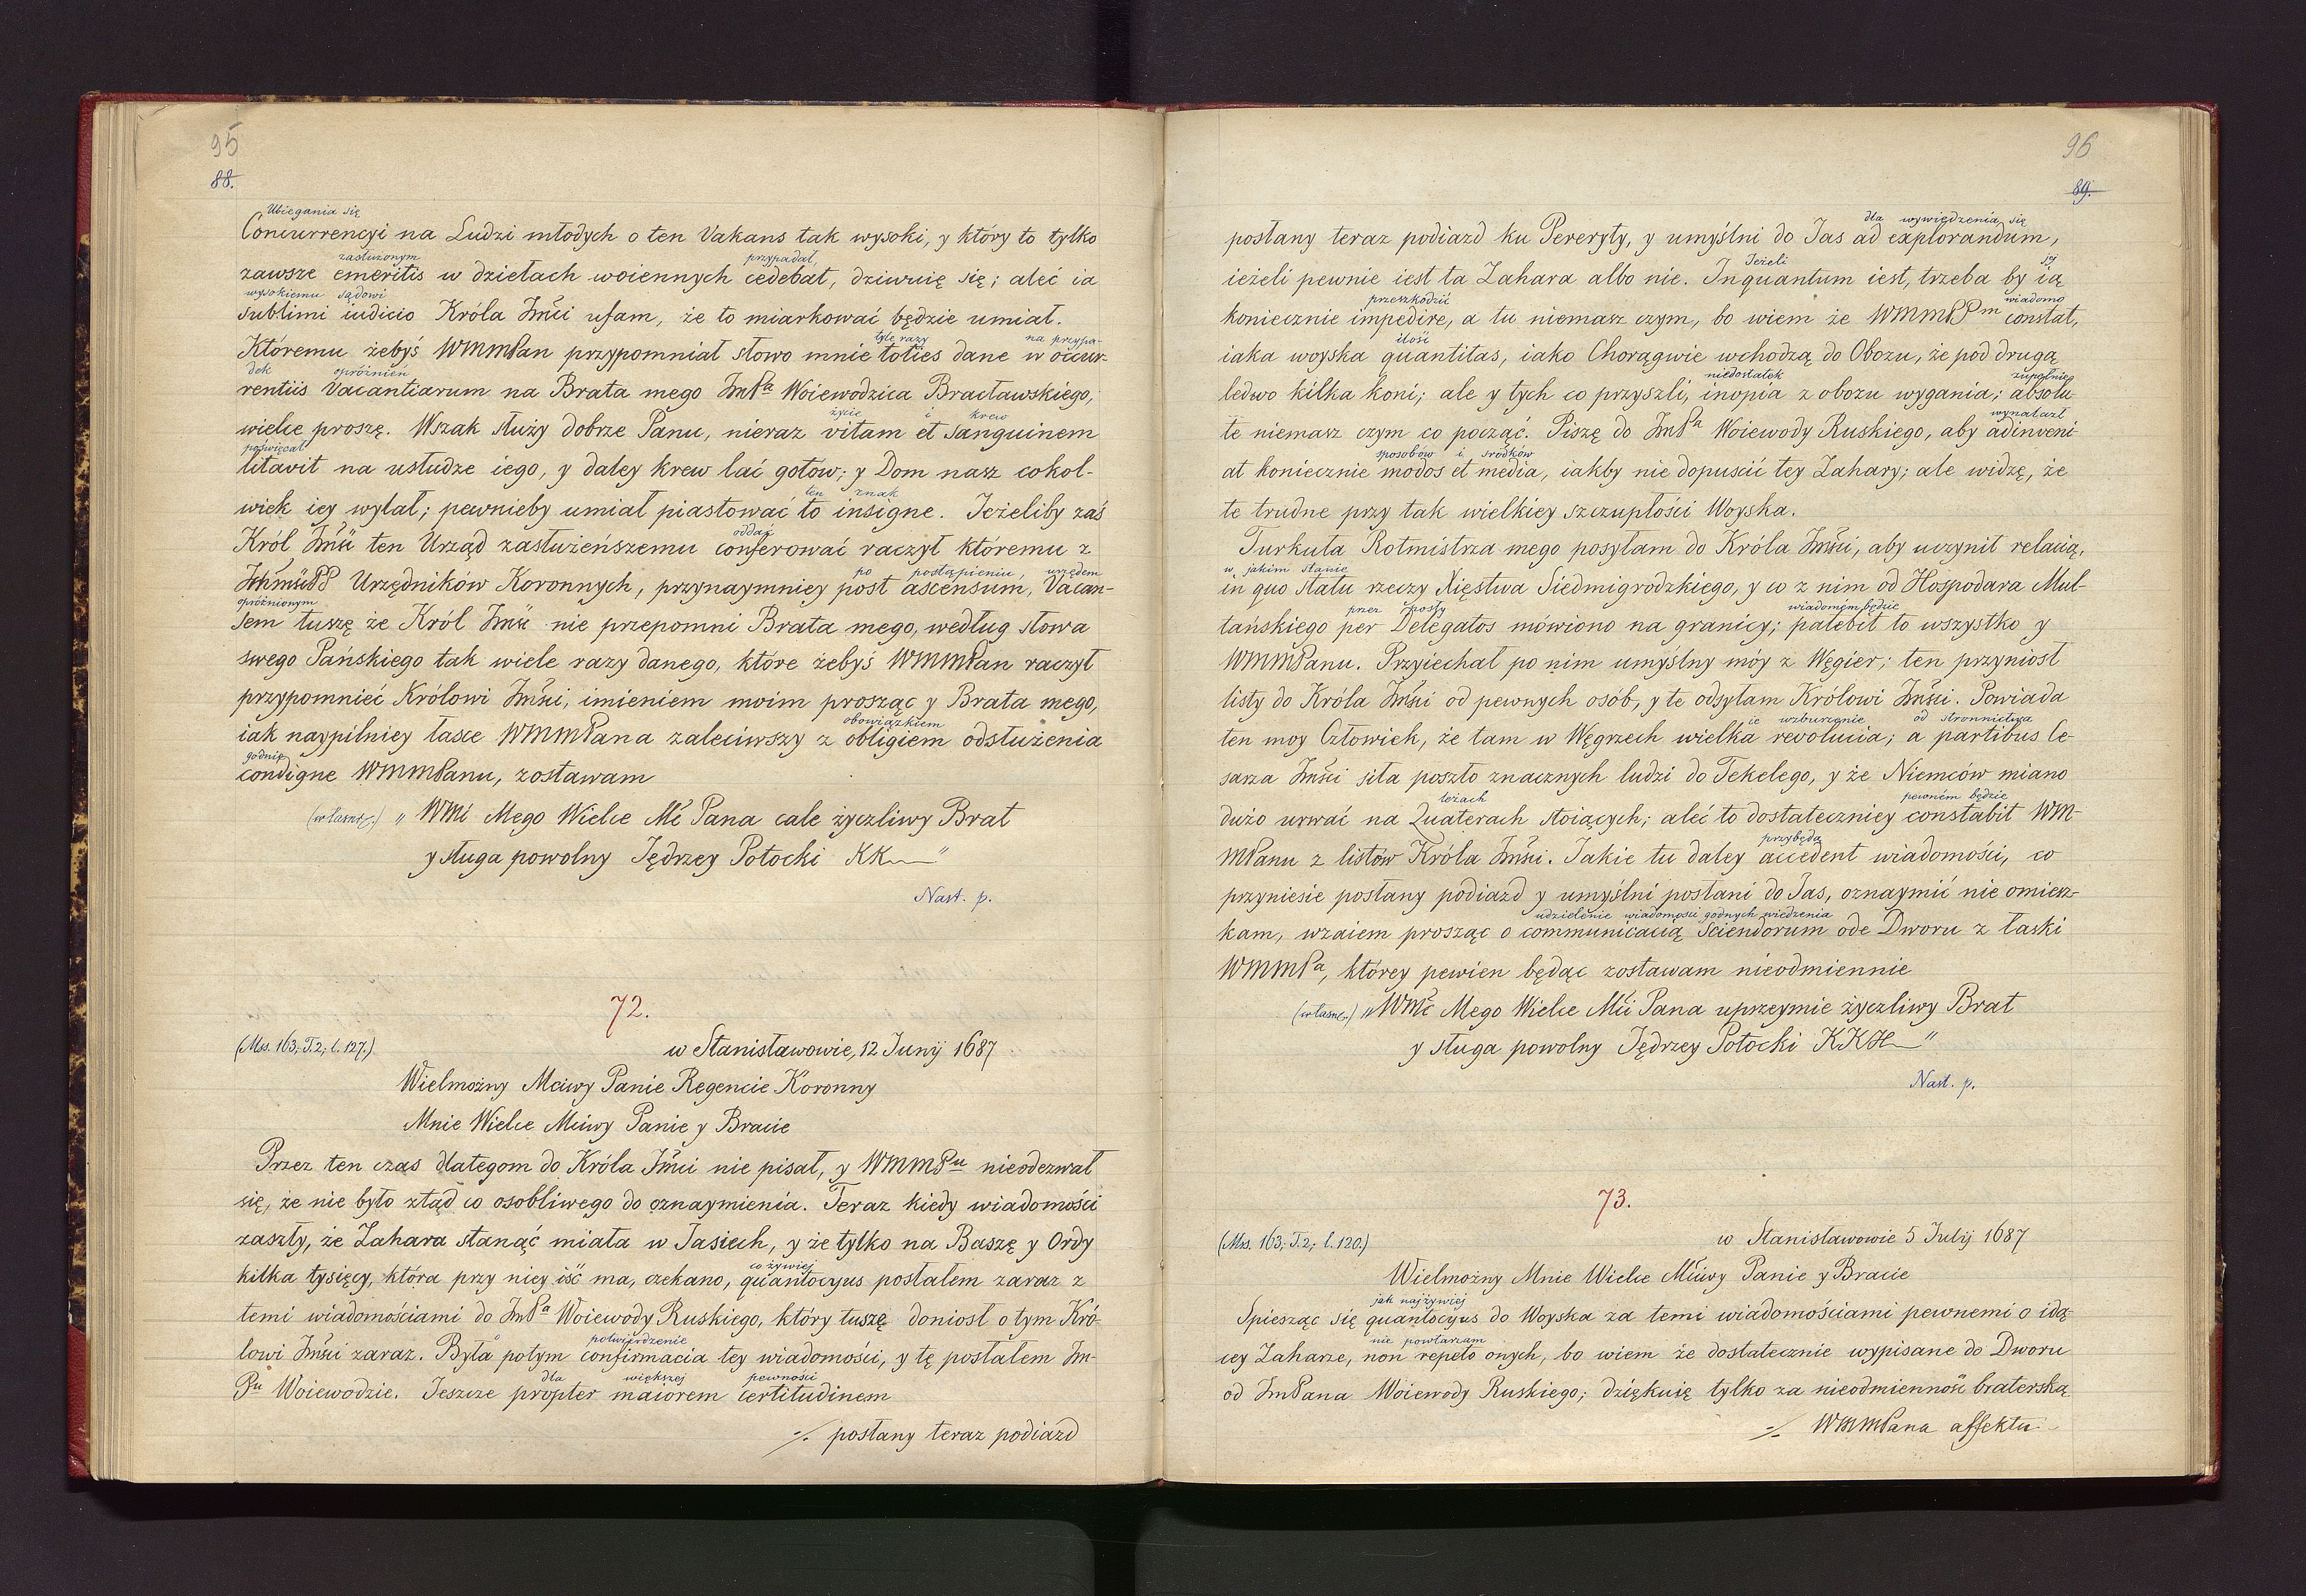 95
88.
Ubiegania się
Concurrencyi na Ludzi młodych o ten Vakans tak wysoki, y który to tylko
zasłużonym przypadał,
zawsze emeritis w dziełach woiennych cedebat, dziwuię się; aleć ia
wysokiemu sądowi
sublimi iudicio Króla Jmści ufam, że to miarkować będzie umiał.
tyle razy na przypa-
Któremu żebyś WMMPan przypomniał słowo mnie toties dane w occur-
dek opróżnień
rentiis Vacantiarum na Brata mego JmPa Woiewodzica Bracławskiego,
życie i krew
wielce proszę. Wszak służy dobrze Panu, nieraz vitam et sanguinem
poświęcał
litavit na usłudze iego, y daley krew lać gotów; y Dom nasz cokol-
ten znak
wiek iey wylał; pewnieby umiał piastować to insigne. Jeżeliby zaś
oddać
Król Jmść ten Urząd zasłużeńszemu conferować raczył któremu z
po postąpieniu, urzędem
IchmściPP Urzędników Koronnych, przynaymniey post ascensum, Vacan-
opróżnionym
sem tuszę że Król Jmść nie przepomni Brata mego, według słowa
swego Pańskiego tak wiele razy danego, które żebyś WMMPan raczył
przypomnieć Królowi Jmści, imieniem moim prosząc y Brata mego,
obowiązkiem
iak naypilniey łasce WMMPana zaleciwszy z obligiem odsłużenia
godnie
condigne WMMPanu, zostawam
(własnr.) „ WMć Mego Wielce Mć Pana cale życzliwy Brat
y sługa powolny Jędrzey Potocki KK "
Nast. p.
72.
(Mss. 163; T.2; l. 127.) w Stanisławowie, 12 Junij 1687
Wielmożny Mciwy Panie Regencie Koronny
Mnie Wielce Mciwy Panie y Bracie
Przez ten czas dlategom do Króla Jmści nie pisał, y WMMPu nieodezwał
się, że nie było ztąd co osobliwego do oznaymienia. Teraz kiedy wiadomości
zaszły, że Zahara stanąć miała w Jasiech, y że tylko na Baszę y Ordy
co żywiej
kilka tysięcy, która przy niey iść ma, czekano, quantocyus posłałem zaraz z
temi wiadomościami do JmPa Woiewody Ruskiego, który tuszę doniosł o tym Kró-
potwierdzenie
lowi Jmści zaraz. Była potym confirmacia tey wiadomości, y tę posłałem Jm-
dla większej pewności
Pu Woiewodzie. Jeszcze propter maiorem certitudinem
./. posłany teraz podiazd
96
89.
dla wywiedzenia się
posłany teraz podiazd ku Pereryty, y umyślni do Jas ad explorandum,
Jeżeli jej
ieżeli pewnie iest ta Zahara albo nie. Inquantum iest, trzeba by ią
przeszkodzić wiadomo
koniecznie impedire, a tu niemasz czym, bo wiem że WMMPPm constat,
ilość
iaka woyska quantitas, iako Chorągwie wchodzą do Obozu, że pod drugą
niedostatek zupełnie
ledwo kilka koni; ale y tych co przyszli, inopia z obozu wygania; absolu-
wynalazł
te niemasz czym co począć. Piszę do JmPa Woiewody Ruskiego, aby adinveni-
sposobów i środków
at koniecznie modos et media, iakby nie dopuścić tey Zahary; ale widzę, że
te trudne przy tak wielkiey szczupłości Woyska.
Turkuła Rotmistrza mego posyłam do Króla Jmści, aby uczynił relacią,
w jakim stanie
in quo statu rzeczy Xięstwa Siedmigrodzkiego, y co z nim od Hospodara Mul-
przez posły wiadomém będzie
tańskiego per Delegatos mówiono na granicy; patebit to wszystko y
WMMPanu. Przyiechał po nim umyślny móy z Węgier; ten przyniosł
listy do Króla Jmści od pewnych osób, y te odsyłam Królowi Jmści. Powiada
ie wzburzenie od stronnictwa
ten moy Człowiek, że tam w Węgrzech wielka revolucia; a partibus Ce-
sarza Jmści siła poszło znacznych ludzi do Tekelego, y że Niemców miano
leżach pewném będzie
dużo urwać na Quaterach stoiących; aleć to dostateczniey constabit WM-
przybędą
MPanu z listów Króla Jmści. Jakie tu daley accedent wiadomości, co
przyniesie posłany podiazd y umyślni posłani do Jas, oznaymić nie omiesz-
udzielenie wiadomości godnych wiedzenia
kam, wzaiem prosząc o communicacią Sciendorum ode Dworu z łaski
WMMPa, którey pewien będąc zostawam nieodmiennie
(własnr.) „WMć Mego Wielce Mći Pana uprzeymie życzliwy Brat
y sługa powolny Jędrzey Potocki KKH "
Nast. p.
73.
(Mss. 163; T.2; l. 120.) w Stanisławowie 5 Julij 1687
Wielmożny Mnie Wielce Mciwy Panie y Bracie
jak najżywiej
Spiesząc się quantocyus do Woyska za temi wiadomościami pewnemi o idą-
nie powtarzam
cey Zaharze, non repeto onych, bo wiem że dostatecznie wypisane do Dworu
od JmPana Woiewody Ruskiego; dziękuię tylko za nieodmienność braterską
./. WMMPana affektu